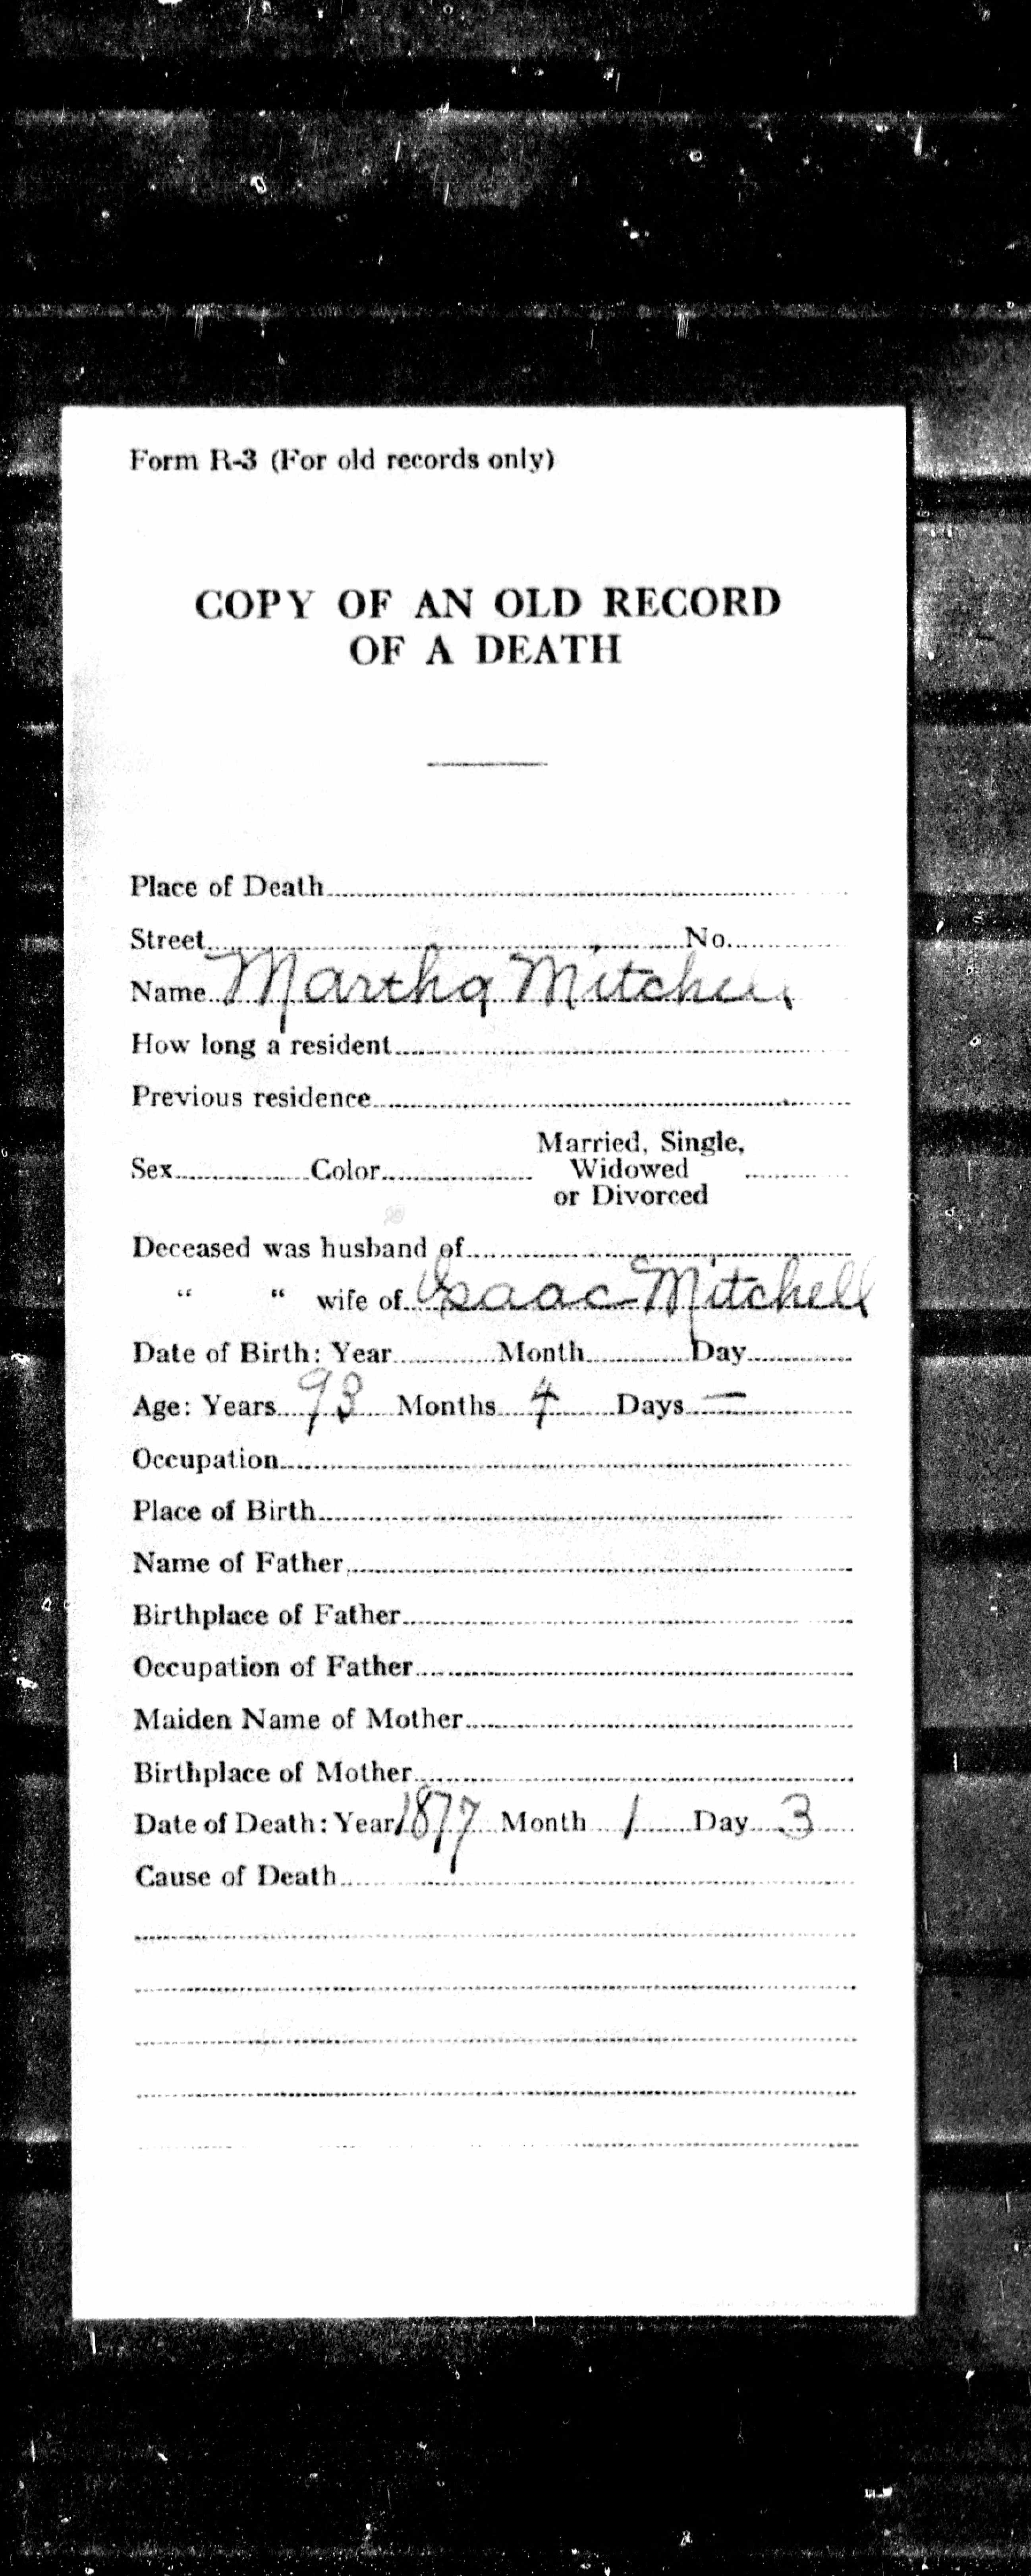 Form R-3 (For old records only)
COPY OF AN OLD RECORD
OF A DEATH
Place of Death
Street No.
Name Martha Mitchell
How long a resident
Previous residence
Married, Single,
Sex Color Widowed
or Divorced
Deceased was husband of
" " wife of Isaac Mitchell
Date of Birth: Year Month Day
Age: Years 93 Months 4 Days —
Occupation
Place of Birth
Name of Father
Birthplace of Father
Occupation of Father
Maiden Name of Mother
Birthplace of Mother
Date of Death: Year 1877 Month 1 Day 3
Cause of Death